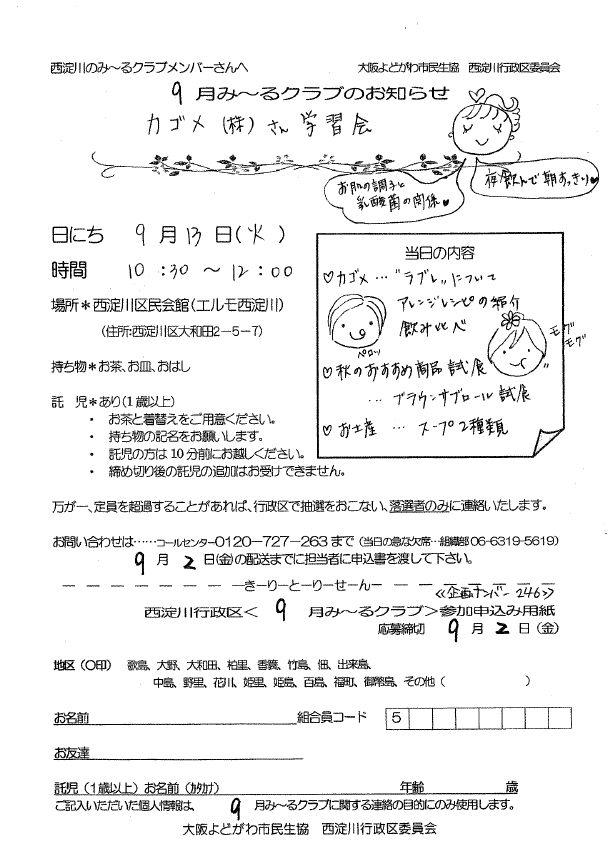 西淀川のみ～るクラブメンバーさんへ
大阪よどがわ市民生協 西淀川行政区委員会
9月み～るクラブのお知らせ
カゴメ(株)さん学習会
お肌の調子と
乳酸菌の関係♥
夜飲んで朝すっきり♥
日にち 9月13日(火)
時間 10:30～12:00
場所＊西淀川区民会館(エルモ西淀川)
(住所:西淀川区大和田2－5－7)
持ち物＊お茶、お皿、おはし
託 児＊あり(1歳以上)
・ お茶と着替えをご用意ください。
・ 持ち物の記名をお願いします。
・ 託児の方は10分前にお越しください。
・ 締め切り後の託児の追加はお受けできません。
当日の内容
♡カゴメ…"ラブレ"について
アレンジレシピの紹介
飲み比べ
ペロッ
モグモグ
♡秋のおすすめ商品試食
…ブラウンサブロール試食
♡お土産…スープ2種類
万が一、定員を超過することがあれば、行政区で抽選をおこない、落選者のみに連絡いたします。
お問い合わせは……コールセンター0120－727－263まで(当日の急な欠席…組織部06-6319-5619)
9月2日(金)の配送までに担当者に申込書を渡して下さい。
きーりーとーりーせーん
≪企画ナンバー246≫
西淀川行政区＜9月み～るクラブ＞参加申込み用紙
応募締切 9月2日(金)
地区(○印) 歌島、大野、大和田、柏里、香簑、竹島、佃、出来島、
中島、野里、花川、姫里、姫島、百島、福町、御幣島、その他( )
お名前 組合員コード 5
お友達
託児(1歳以上)お名前(ｶﾀｶﾅ) 年齢 歳
ご記入いただいた個人情報は、9月み～るクラブに関する連絡の目的にのみ使用します。
大阪よどがわ市民生協 西淀川行政区委員会